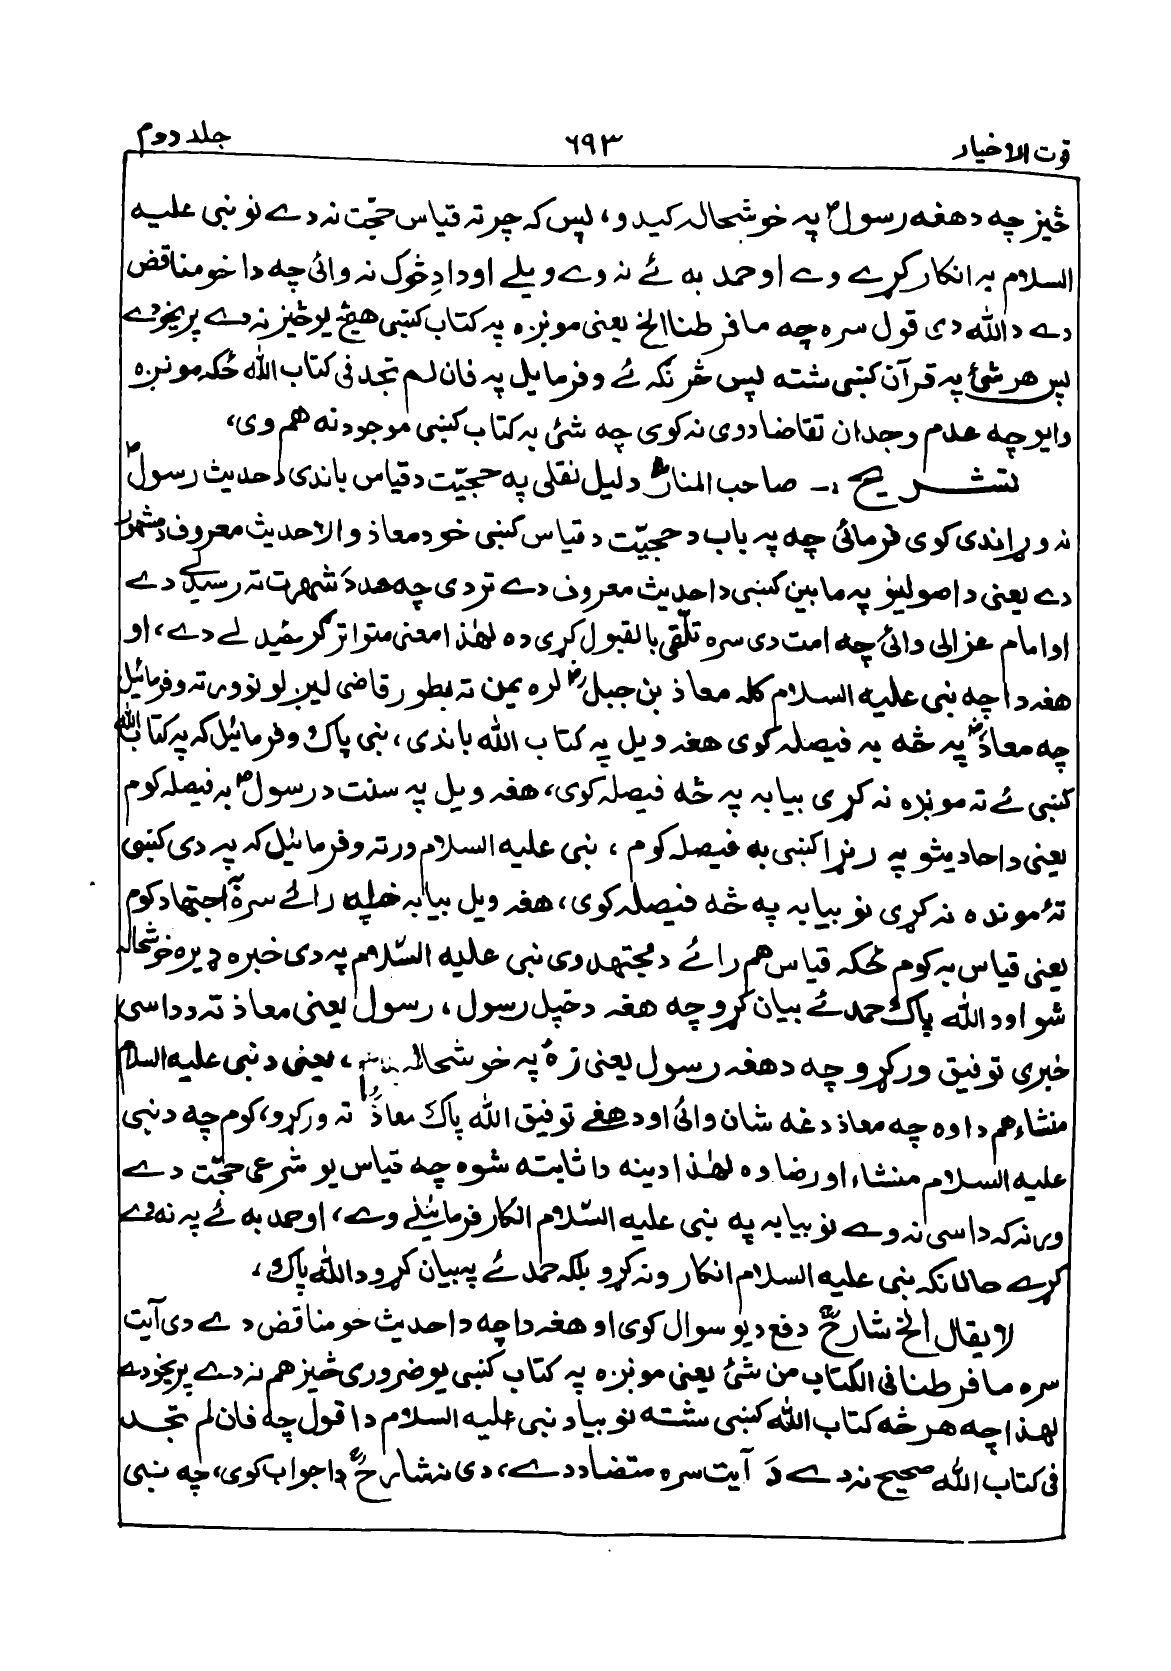 قوت الاخیار ۶۹۳ جلد دوم
څیز چه دهغه رسول ؐ په خوشحاله کیدو، پس که چرته قیاس حجّت نه دے نو نبی علیه
السلام به انکار کړے وے او حمد به ئے نه وے ویلے او دا دِ څوک نه وائی چه دا خو مناقض
دے د الله دی قول سره چه ما فرطنا الخ یعنی مونږه په کتاب کښی هیڅ یو څیز نه دے پریخودے
پس هر شئ په قرآن کښی شته پس څرنګه ئے وفرمایل په فان لم تجد فی کتاب الله ځکه مونږه
وایو چه عدم وجدان تقاضا ددی نه کوی چه شئ په کتاب کښی موجود نه هم وی،
تشریح :- صاحب المنارؒ دلیل نقلی په حجیّت د قیاس باندی د حدیث رسول ؐ
نه وړاندی کوی فرمائی چه په باب د حجیّت د قیاس کښی خود معاذ والا حدیث معروف و مشهور
دے یعنی د اصولینو په مابین کښی دا حدیث معروف دے تردی چه حد دَ شهرت ته رسیدلے دے
او امام غزالی وائی چه امت دی سره تلّقی بالقبول کړی ده لهٰذا معنی متواتر ګرځیدلے دے، او
هغه دا چه نبی علیه السلام کله معاذ بن جبل ؓ لره یمن ته بطور قاضی لیږلو نو وی ته وفرمائیل
چه معاذ ؓ په څه به فیصله کوی هغه ویل په کتاب الله باندی، نبی پاک وفرمائیل که په کتاب الله
کښی ئے ته مونږه نه کړی بیا به په څه فیصله کوی، هغه ویل په سنت د رسول ؐ به فیصله کوم
یعنی د احادیثو په رنړا کښی به فیصله کوم، نبی علیه السلام ورته وفرمائیل که په دی کښی
تهٔ مونده نه کړی نو بیا به په څه فیصله کوی، هغه ویل بیا به خپله رائے سره اجتهاد کوم
یعنی قیاس به کوم ځکه قیاس هم رائے د مجتهد وی نبی علیه السّلام په دی خبره ډیره خوشحاله
شو او د الله پاک حمد ئے بیان کړو چه هغه د خپل رسول، رسول یعنی معاذ ته د داسی
خبری توفیق ورکړو چه دهغه رسول یعنی زهٔ په خوشحاله، یعنی د نبی علیه السلام
منشاء هم دا وه چه معاذ دغه شان وائی او دهغے توفیق الله پاک معاذؓ ته ورکړو، کوم چه د نبی
علیه السلام منشاء او رضا وه لهٰذا دینه دا ثابته شوه چه قیاس یو شرعی حجّت دے
وی نه که داسی نه وے نو بیا به په نبی علیه السّلام انکار فرمائیلے وے، او حمد به ئے په نه وے
کړے حالانکه نبی علیه السلام انکار ونه کړو بلکه حمد ئے په بیان کړو د الله پاک،
لا یقال الخ شارحؒ دفع د یو سوال کوی او هغه دا چه دا حدیث خو مناقض دے دی آیت
سره ما فرطنا فی الکتاب من شئ یعنی مونږه په کتاب کښی یو ضروری څیز هم نه دے پریخودے
لهذا چه هر څه کتاب الله کښی شته نو بیا د نبی علیه السلام دا قول چه فان لم تجد
فی کتاب الله صحیح نه دے دَ آیت سره متضاد دے، دی نه شارحؒ دا جواب کوی، چه نبی